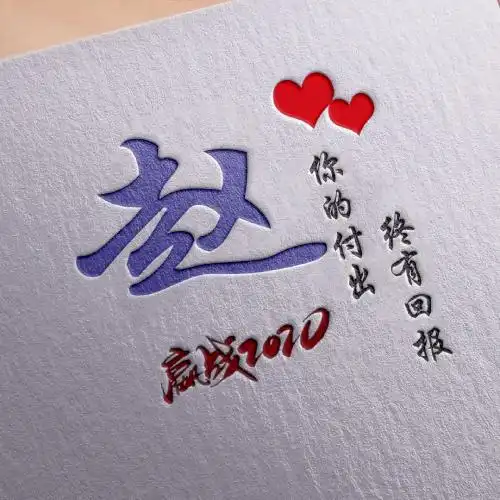 赵
你的付出
终有回报
赢战2020